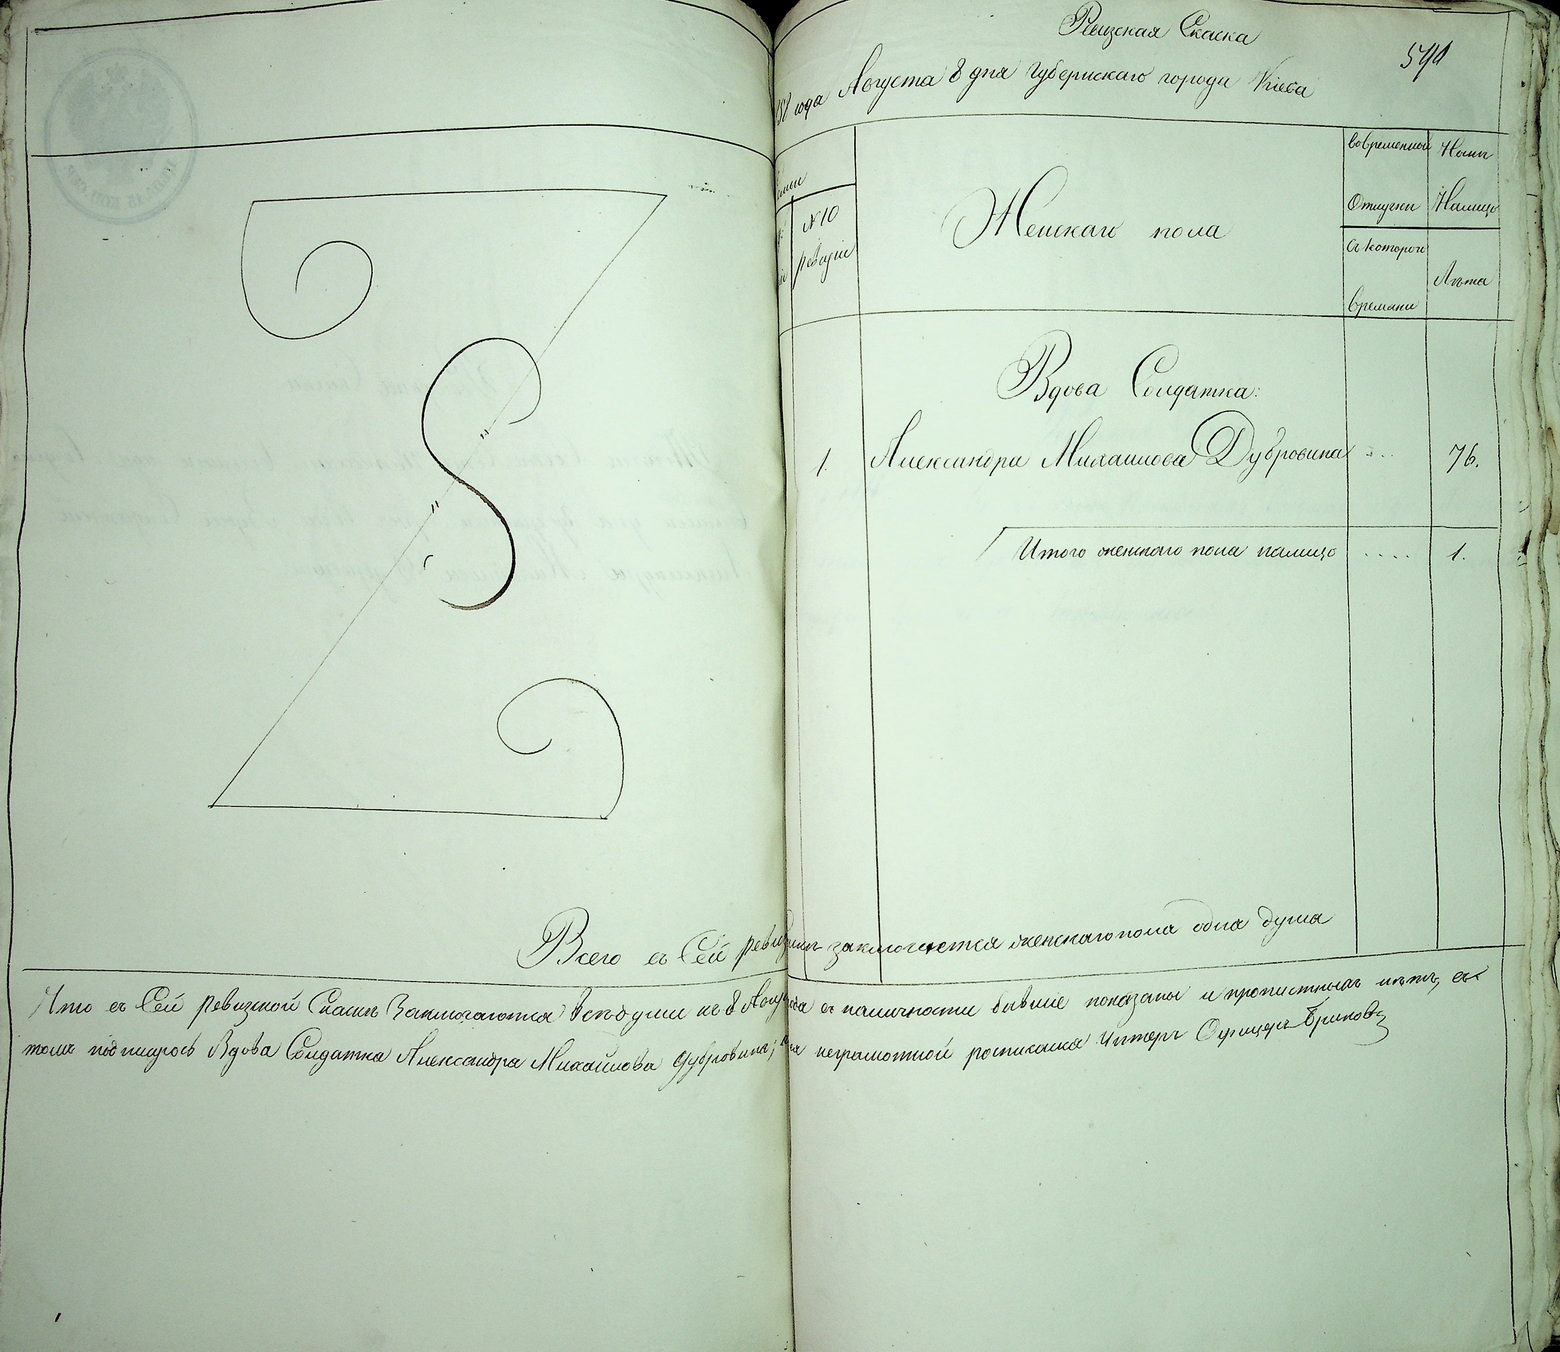 Ревизская Скаска
541
года Августа 8 дня Губернскаго города Киева
№ 10
ревизiи
Женскаго пола
Во временной
Отлучки
Съ котораго
времани
Нынѣ
Налицо
Лѣта
Вдова Солдатка:
1. Александра Михаилова Дубровина ... 76.
Итого женскаго пола налицо .... 1.
Всего въ Сей заключается женскаго пола одна душа
Что въ Сей Ревизской Скаскѣ Заключаются всѣ души къ 8 въ наличности бывшие показаны и прописныхъ нѣтъ, въ
томъ подпишусь Вдова Солдатка Александра Михайлова Дубровина; неграмотной росписался Унтеръ Офицеръ